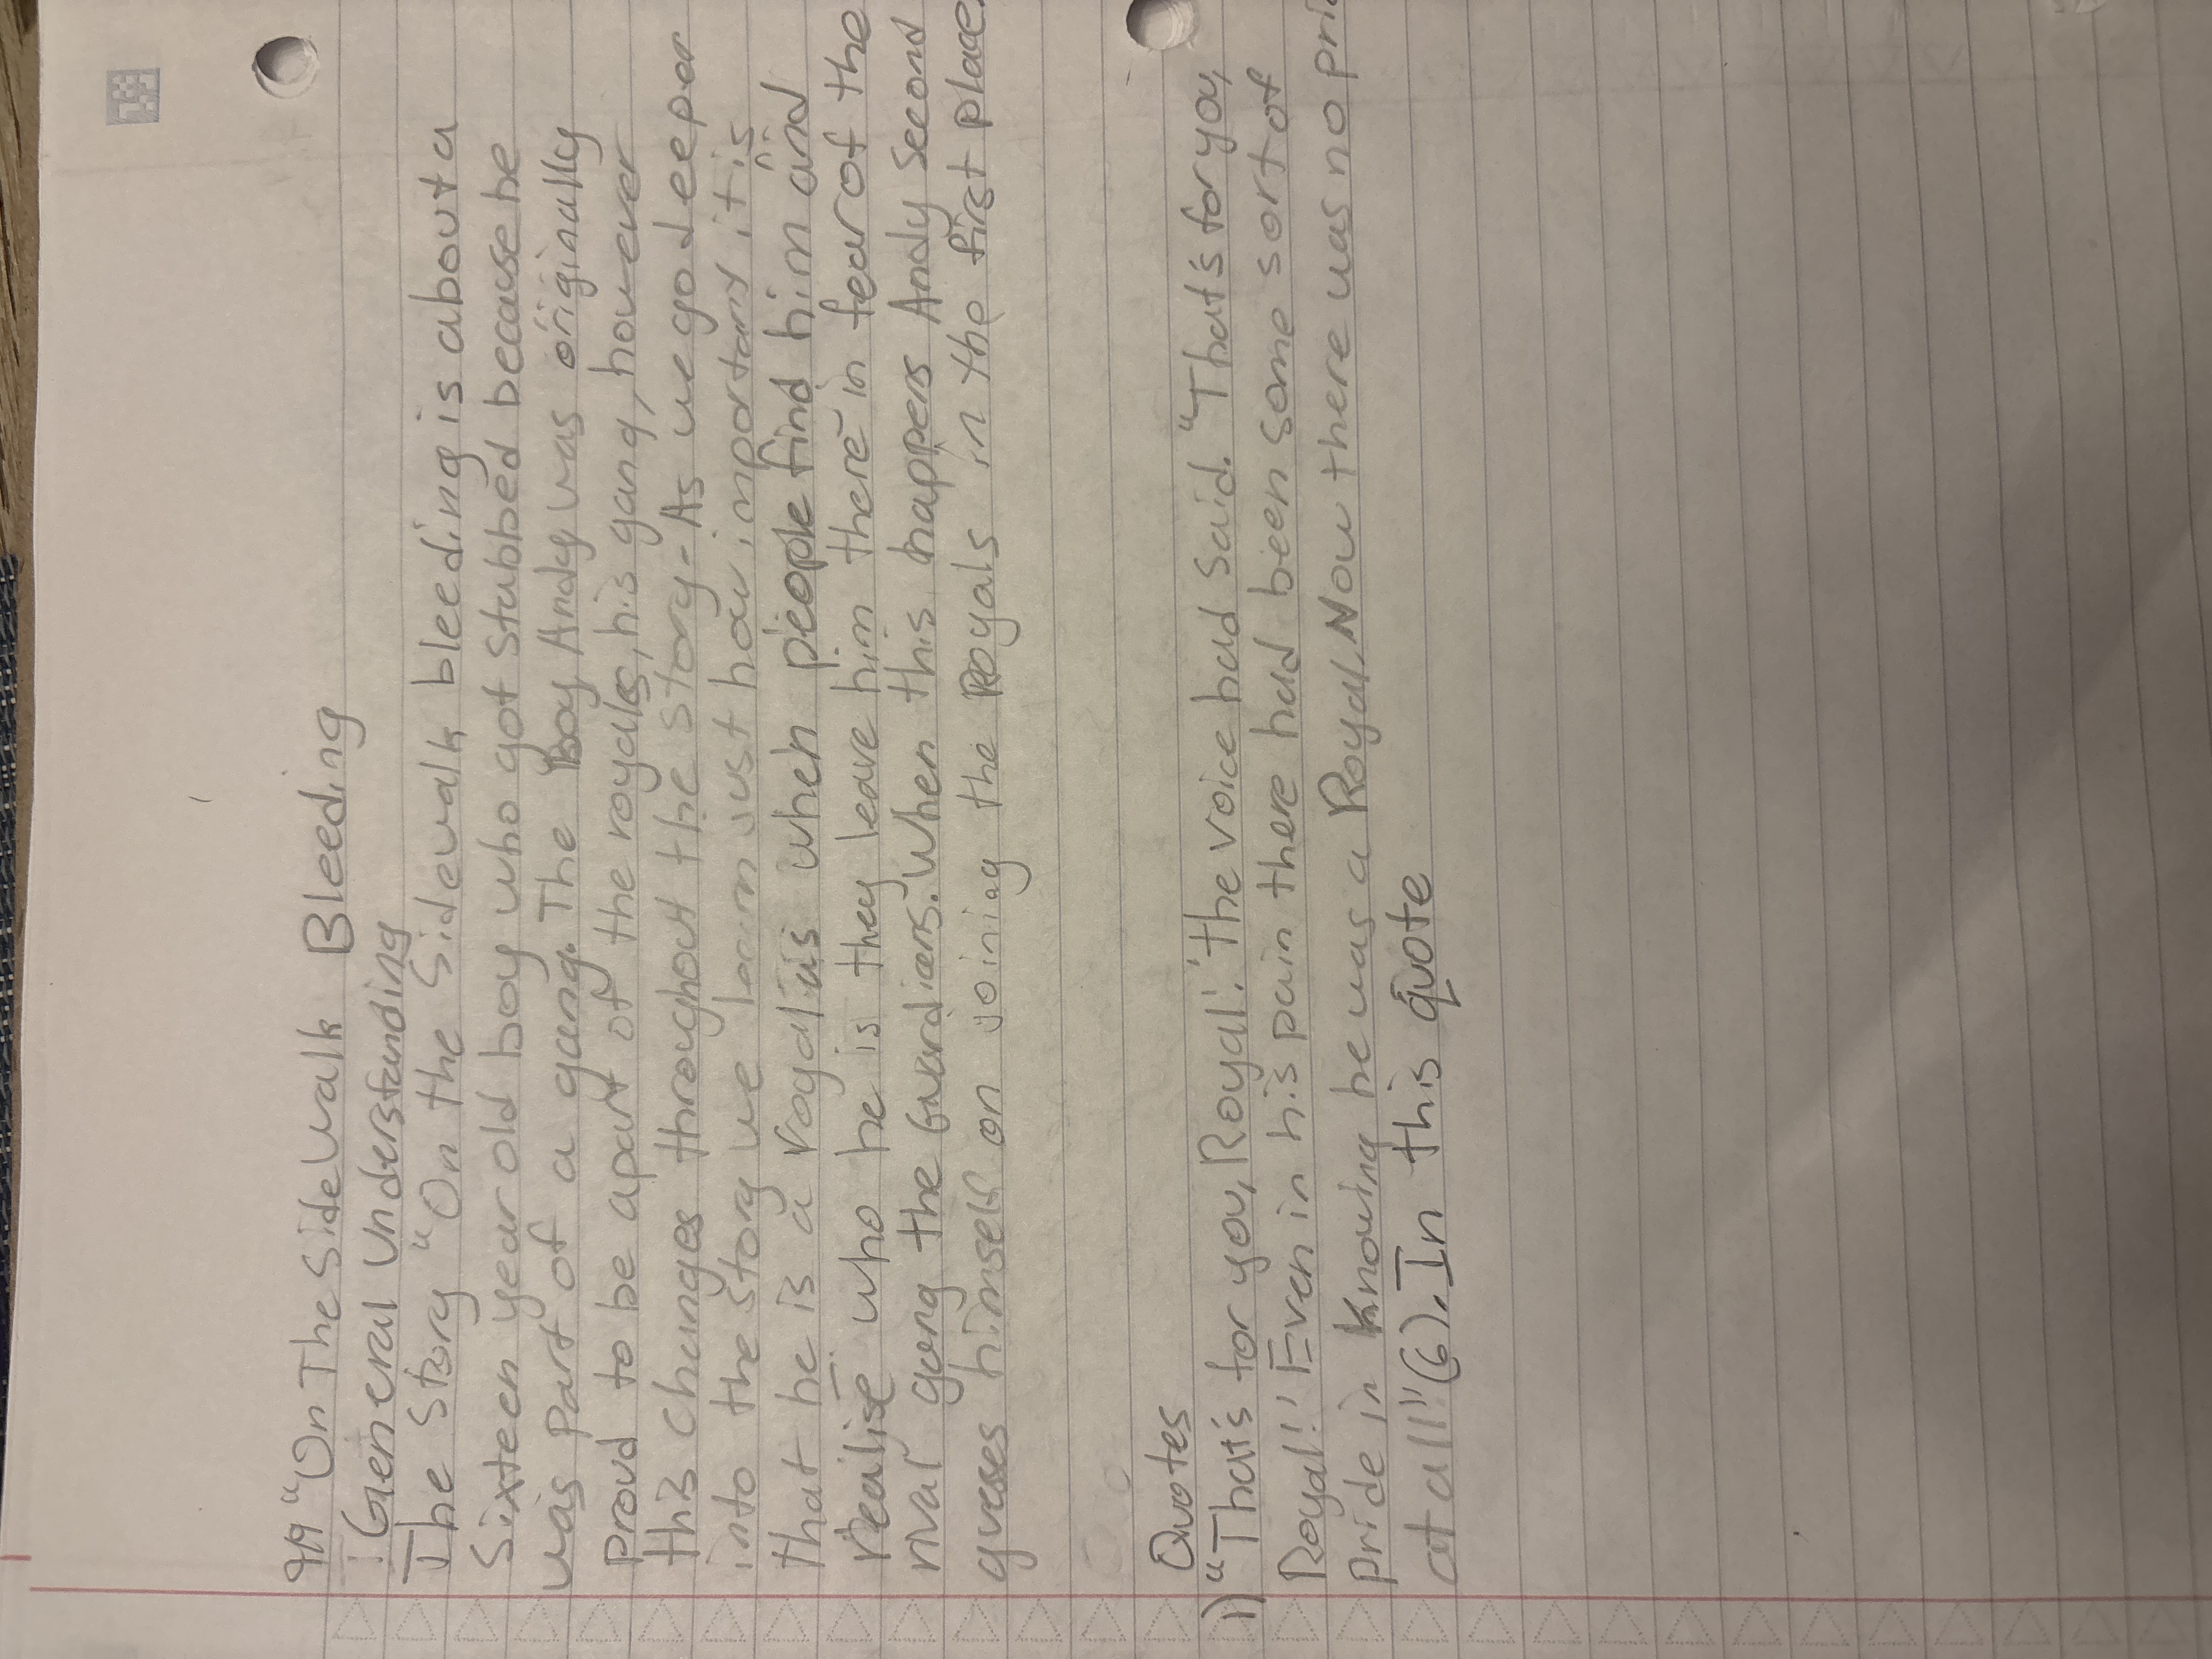 9/9 "On The Sidewalk Bleeding
General Understanding
The story "On the Sidewalk bleeding is about a
Sixteen year old boy who got stabbed because he
was part of a gang. The Boy Andy was originally
proud to be apart of the royales, his gang, however
this changes throughout the story. As we go deeper
into the story we learn just how importany it is
that he is a royal as when people find him and
realise who he is they leave him there in fear of the
rival gang the Guardians. When this happens Andy second
gueses himself on joining the Royals in the first place.
Quotes
1) "That's for you, Royal!' the voice had said. "That's for you,
Royal!' Even in his pain there had been some sort of
pride in knowing he was a Royal. Now there was no pri
at all!" (6). In this quote